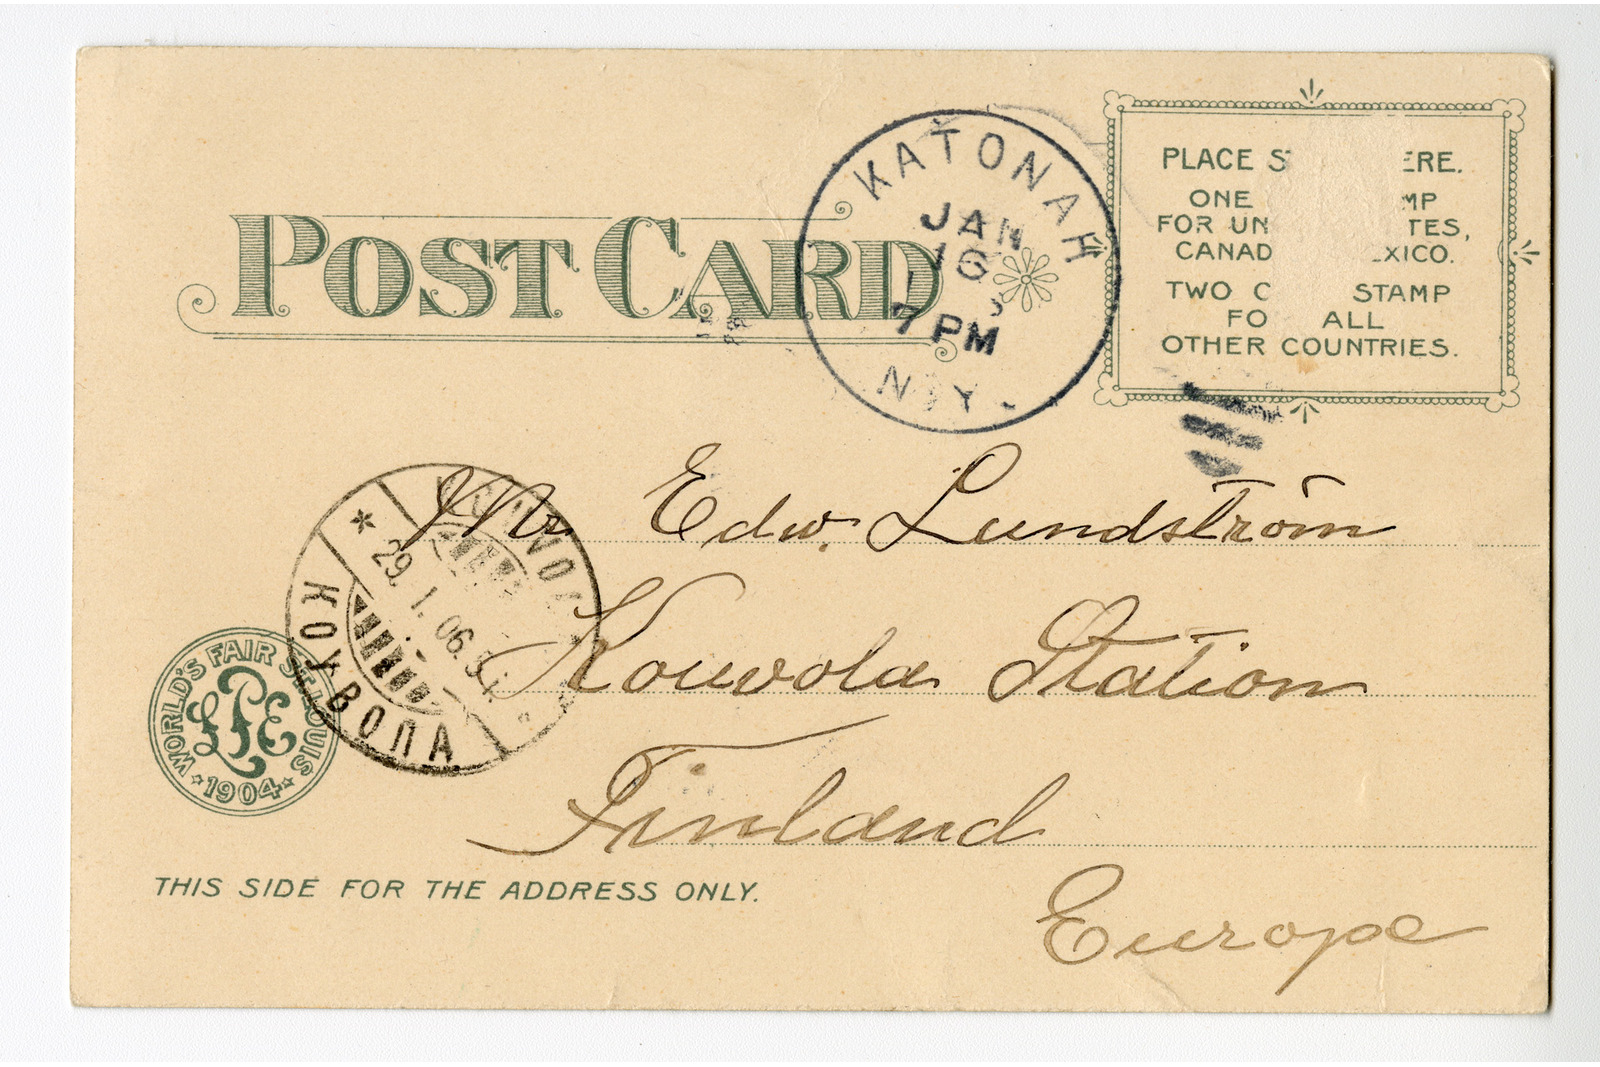 POST CARD
KATONAH
JAN
16
7 PM
N.Y.
PLACE S ERE.
ONE MP
FOR UN TES,
CANAD XICO.
TWO C STAMP
FO ALL
OTHER COUNTRIES.
Mr Edw. Lundström
Kouvola Station
Finland
Europe
29. 1. 06.
КОУВОЛА
WORLD'S FAIR ST. LOUIS
LPE
1904
THIS SIDE FOR THE ADDRESS ONLY.